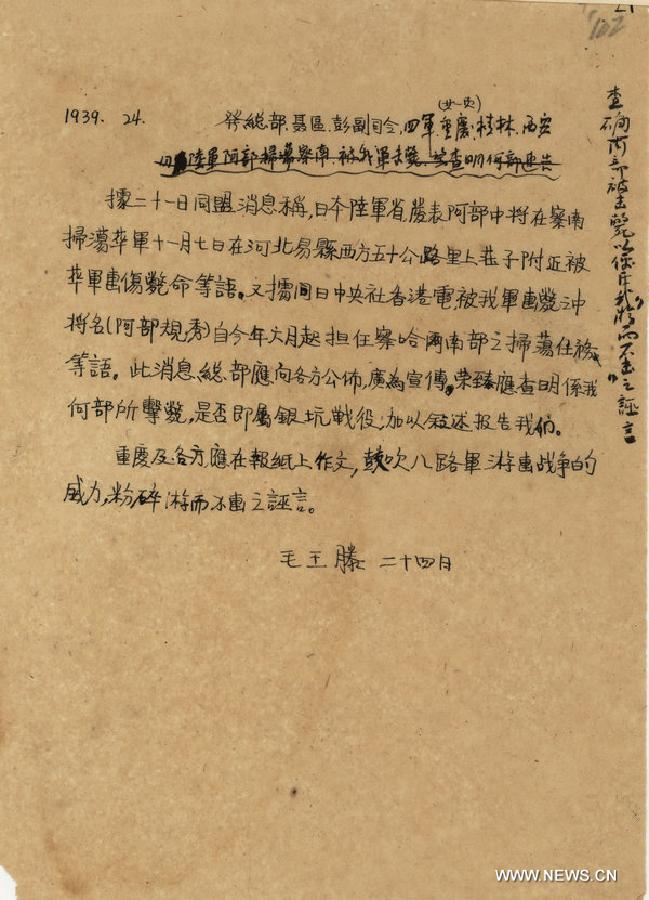 1939. 24.
發總部.聶區.彭副司令.四軍.重慶.桂林.西安
據二十一日同盟消息稱,日本陸軍省發表阿部中將在察南
掃蕩華軍十一月七日在河北易縣西方五十公路里上莊子附近被
華軍擊傷斃命等語。又據同日中央社香港電,被我軍擊斃之中
將名(阿部規秀)自今年六月起担任察哈爾南部之掃蕩任務
等語。此消息總部應向各方公佈,廣為宣傳。榮臻應查明係我
何部所擊斃,是否即屬銀坑戰役,加以敘述报告我們。
重慶及各方應在報紙上作文,鼓吹八路軍游击战争的
威力,粉碎游而不擊之誣言。
毛王滕 二十四日
查確阿部被击斃以
之誣言
WWW.NEWS.CN